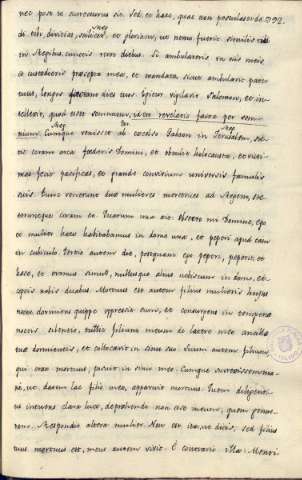 nec post te surrecturus sit. Sed, et haec, quae non postulasti dedi 292.
tibi, divitias, scilicet, et gloriam, ut nemo fuerit similis tui
in Regibus cunctis retro diebus. Si ambulaveris in viis meis
et custodieris praecepta mea, et mandata, sicut ambulavit pater
tuus, longos faciam dies tuos. Igitur vigilavit Salomon, et in-
tellexit, quod esset somnium,
Cumque venisset in Jerusalem, ste-
tit coram arca foederis Domini, et obtulit holocausta, et victi-
mas fecit pacificas, et grande convivium universis famulis
suis. Tunc venerunt duae mulieres meretrices ad Regem, ste-
teruntque coram eo. Quarum una ait: Obsecro mi Domine, ego
et mulier haec habitabamus in domo una, et peperi apud eam
in cubiculo. Tertia autem die, postquam ego peperi, peperit et
haec, et eramus simul, nullusque alius nobiscum in domo, ex-
ceptis nobis duabus. Mortuus est autem filius mulieris hujus
nocte, dormiens quippe oppressit eum, et consurgens in tempesta
noctis, silentio, tulit filium meum de latere meo ancillae
tuae dormientis, et collocavit in sinu suo. Suum autem filium,
qui erat mortuus, posuit in sinu meo. Cumque surrexissem ma-
ne, ut darem lac filio meo, apparuit mortuus. Quem diligentius
intuens clara luce, deprehendi non esse meum, quem genue-
ram. Respondit altera mulier: Non est ita, ut dicis, sed filius
tuus mortuus est, meus autem vivit. E contrario illa: Mentiris